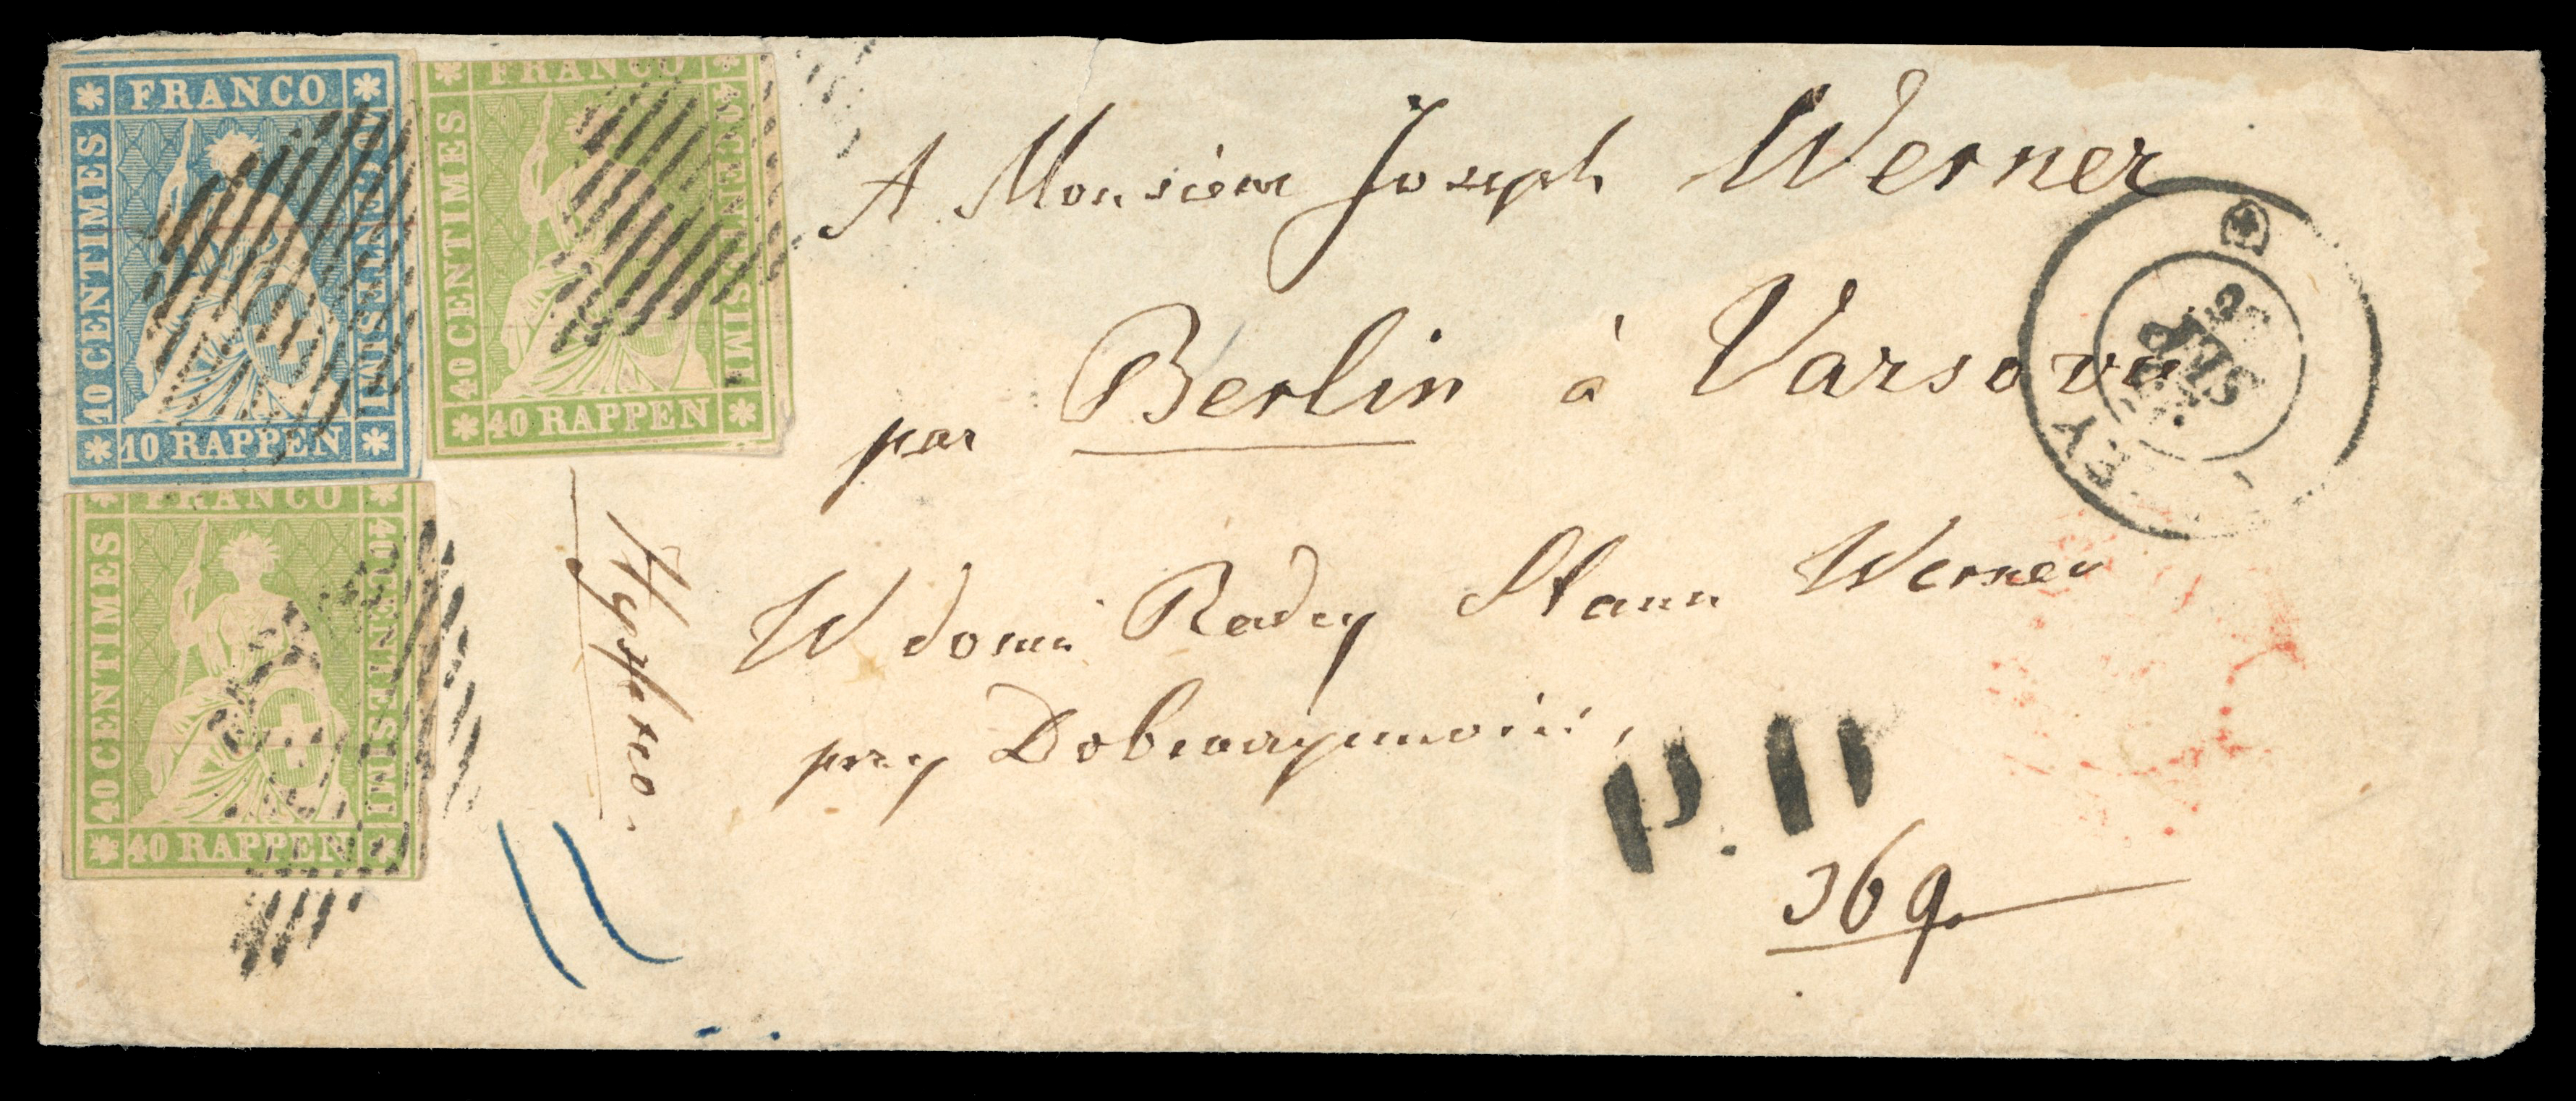 FRANCO
10 CENTIMES
10 CENTESIMI
10 RAPPEN
FRANCO
40 CENTIMES
40 CENTESIMI
40 RAPPEN
FRANCO
40 CENTIMES
40 CENTESIMI
40 RAPPEN
A Monsieur Joseph Werner
par Berlin à Varsovie
W domu Radcy Stanu Werner
przy
SEP
EY
P.
369